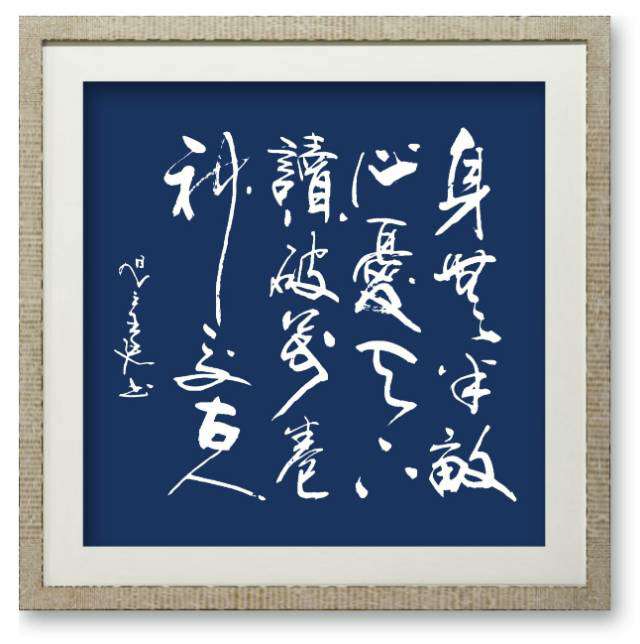 身無半畝
心憂天下
讀破萬卷
神交古人